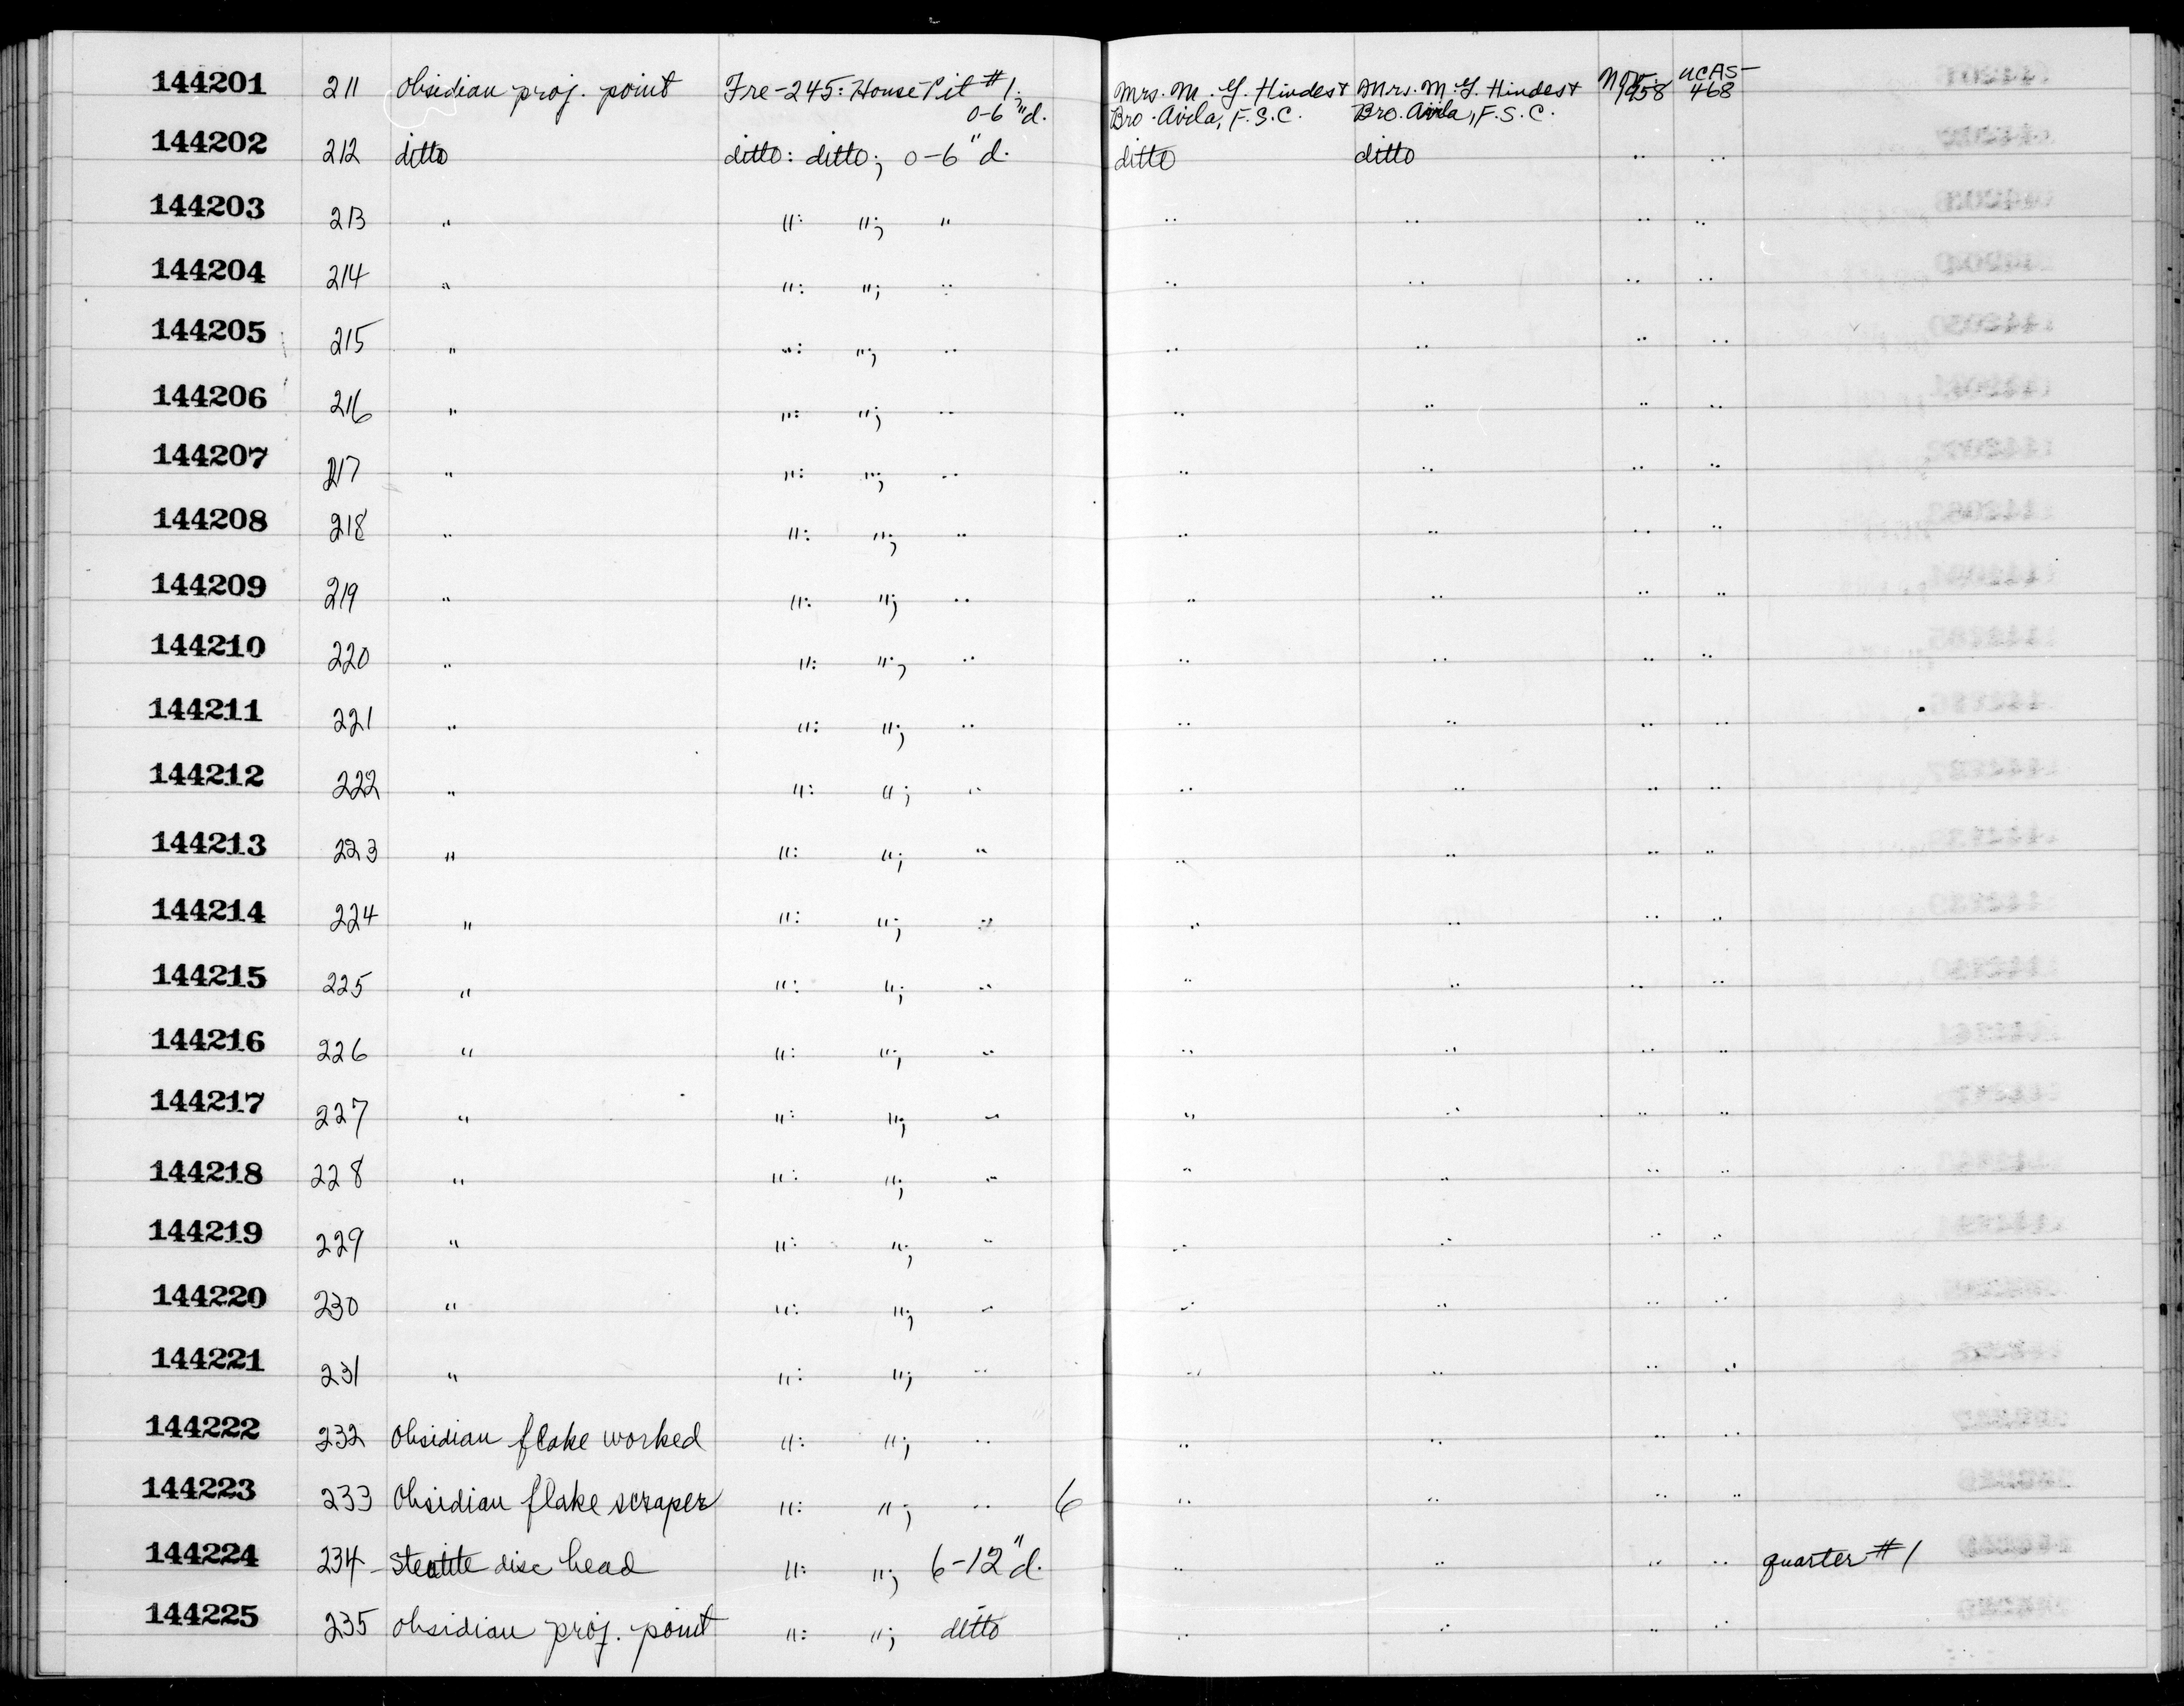 144201 211 Obsidian proj. point Fre-245: House Pit #1; Mrs. M. G. Hindes + Mrs. M. G. Hindes + Nov. 1958 UCAS-468
0-6"d. Bro. Avila, F.S.C. Bro. Avila, F.S.C.
144202 212 ditto ditto: ditto; 0-6"d. ditto ditto " "
144203 213 " ": "; " " " " "
144204 214 " ": "; " " " " "
144205 215 " ": "; " " " " "
144206 216 " ": "; " " " " "
144207 217 " ": "; " " " " "
144208 218 " ": "; " " " " "
144209 219 " ": "; " " " " "
144210 220 " ": "; " " " " "
144211 221 " ": "; " " " " "
144212 222 " ": "; " " " " "
144213 223 " ": "; " " " " "
144214 224 " ": "; " " " " "
144215 225 " ": "; " " " " "
144216 226 " ": "; " " " " "
144217 227 " ": "; " " " " "
144218 228 " ": "; " " " " "
144219 229 " ": "; " " " " "
144220 230 " ": "; " " " " "
144221 231 " ": "; " " " " "
144222 232 Obsidian flake worked ": "; " " " " "
144223 233 Obsidian flake scraper ": "; " 6 " " " "
144224 234 Steatite disc bead ": "; 6-12"d. " " " " quarter #1
144225 235 obsidian proj. point ": "; ditto " " " "